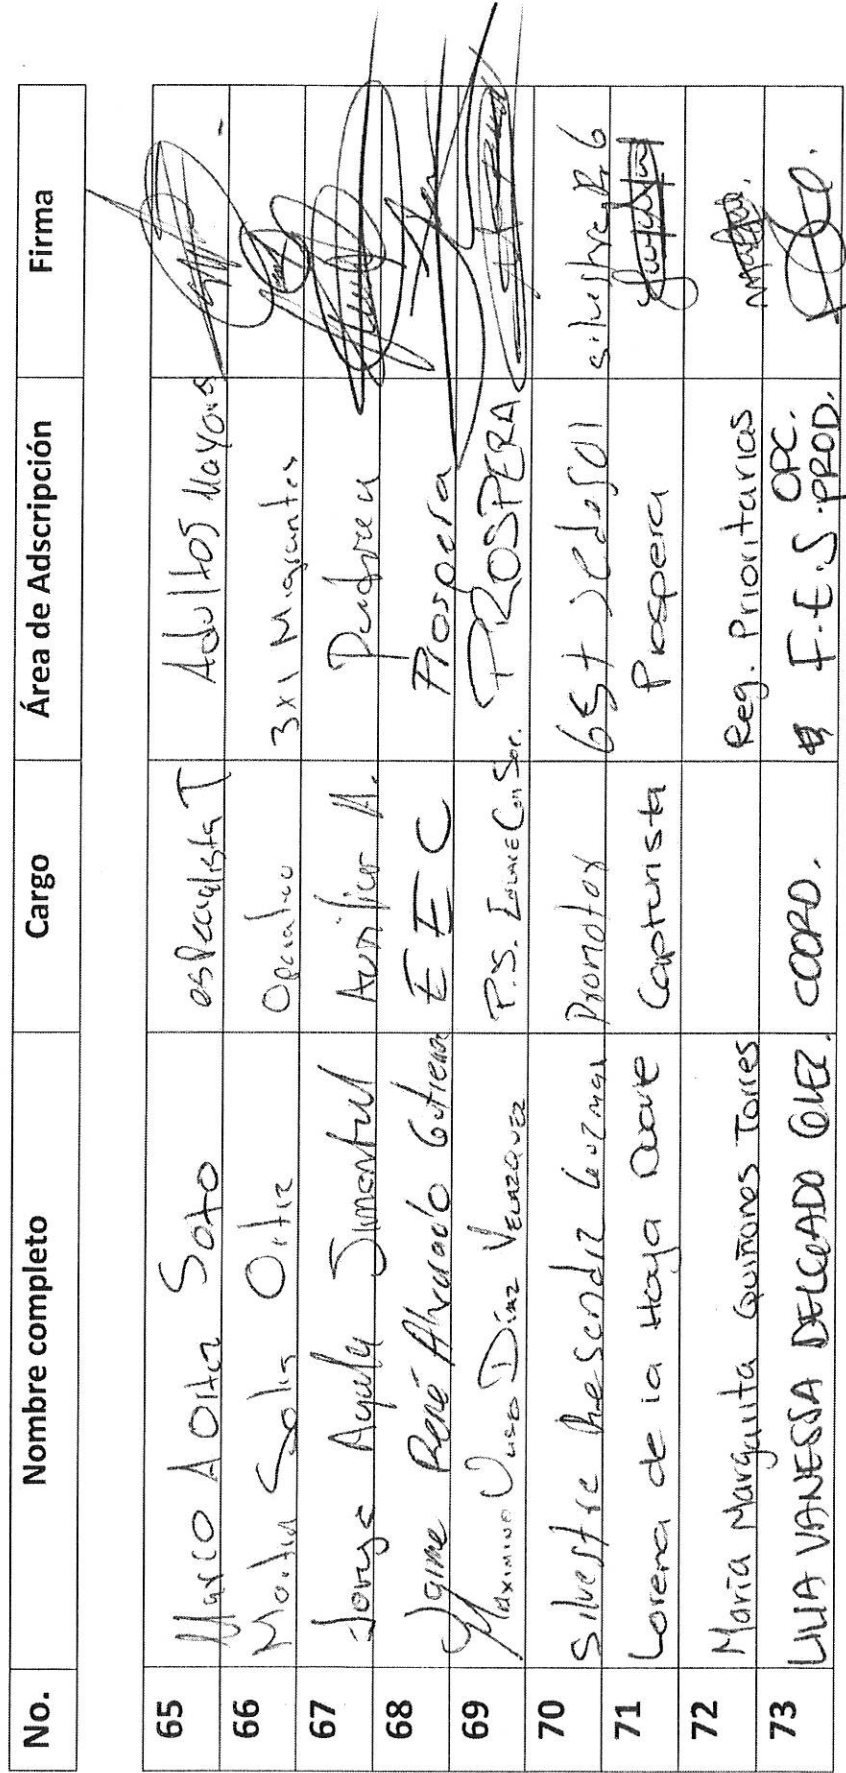 No. Nombre completo Cargo Área de Adscripción Firma
65 Marco A Ortiz Soto especialista T Adultos Mayores
66 Martin Solis Ortiz Operativo 3x1 Migrantes
67 Jorge Ayala Simental Auxiliar A.
68 Jaime René Alvarado Gutierrez E E C Prospera
69 Maximino Díaz Velazquez P.S. Enlace Con Sor. PROSPERA
70 Silvestre Resendiz Guzman Promotor sedesol silvestre R. G
71 Lorena de la Hoya Duarte Capturista Prospera
72 María Margarita Quiñones Torres Reg. Prioritarias
73 LILIA VANESSA DELGADO GLEZ. COORD. F.E.S. OPC. PROD.